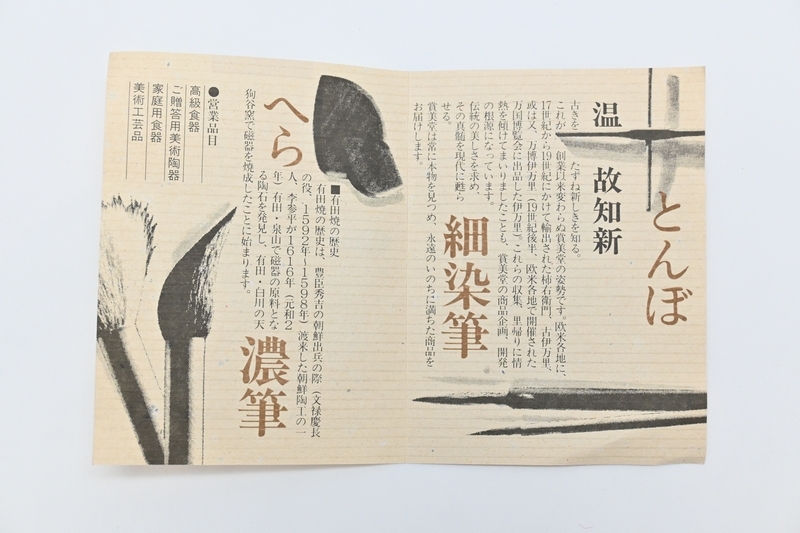 とんぼ
温故知新
古きをたずね新しきを知る。
これが、創業以来変わらぬ賞美堂の姿勢です。欧米各地に、
17世紀から19世紀にかけて輸出された柿右衛門、古伊万里、
或は又、万博伊万里(19世紀後半、欧米各地で開催された
万国博覧会に出品した伊万里)。これらの収集、里帰りに情
熱を傾けてまいりましたことも、賞美堂の商品企画、開発
の根源になっています。
伝統の美しさを求め、
その真髄を現代に甦ら
せる。
賞美堂は常に本物を見つめ、永遠のいのちに満ちた商品を
お届けします。
細染筆
■有田焼の歴史
有田焼の歴史は、豊臣秀吉の朝鮮出兵の際(文禄慶長
の役、1592年〜1598年)渡来した朝鮮陶工の一
人、李参平が1616年(元和2
年)有田・泉山で磁器の原料とな
る陶石を発見し、有田・白川の天
狗谷窯で磁器を焼成したことに始まります。
へら
濃筆
●営業品目
高級食器
ご贈答用美術陶器
家庭用食器
美術工芸品